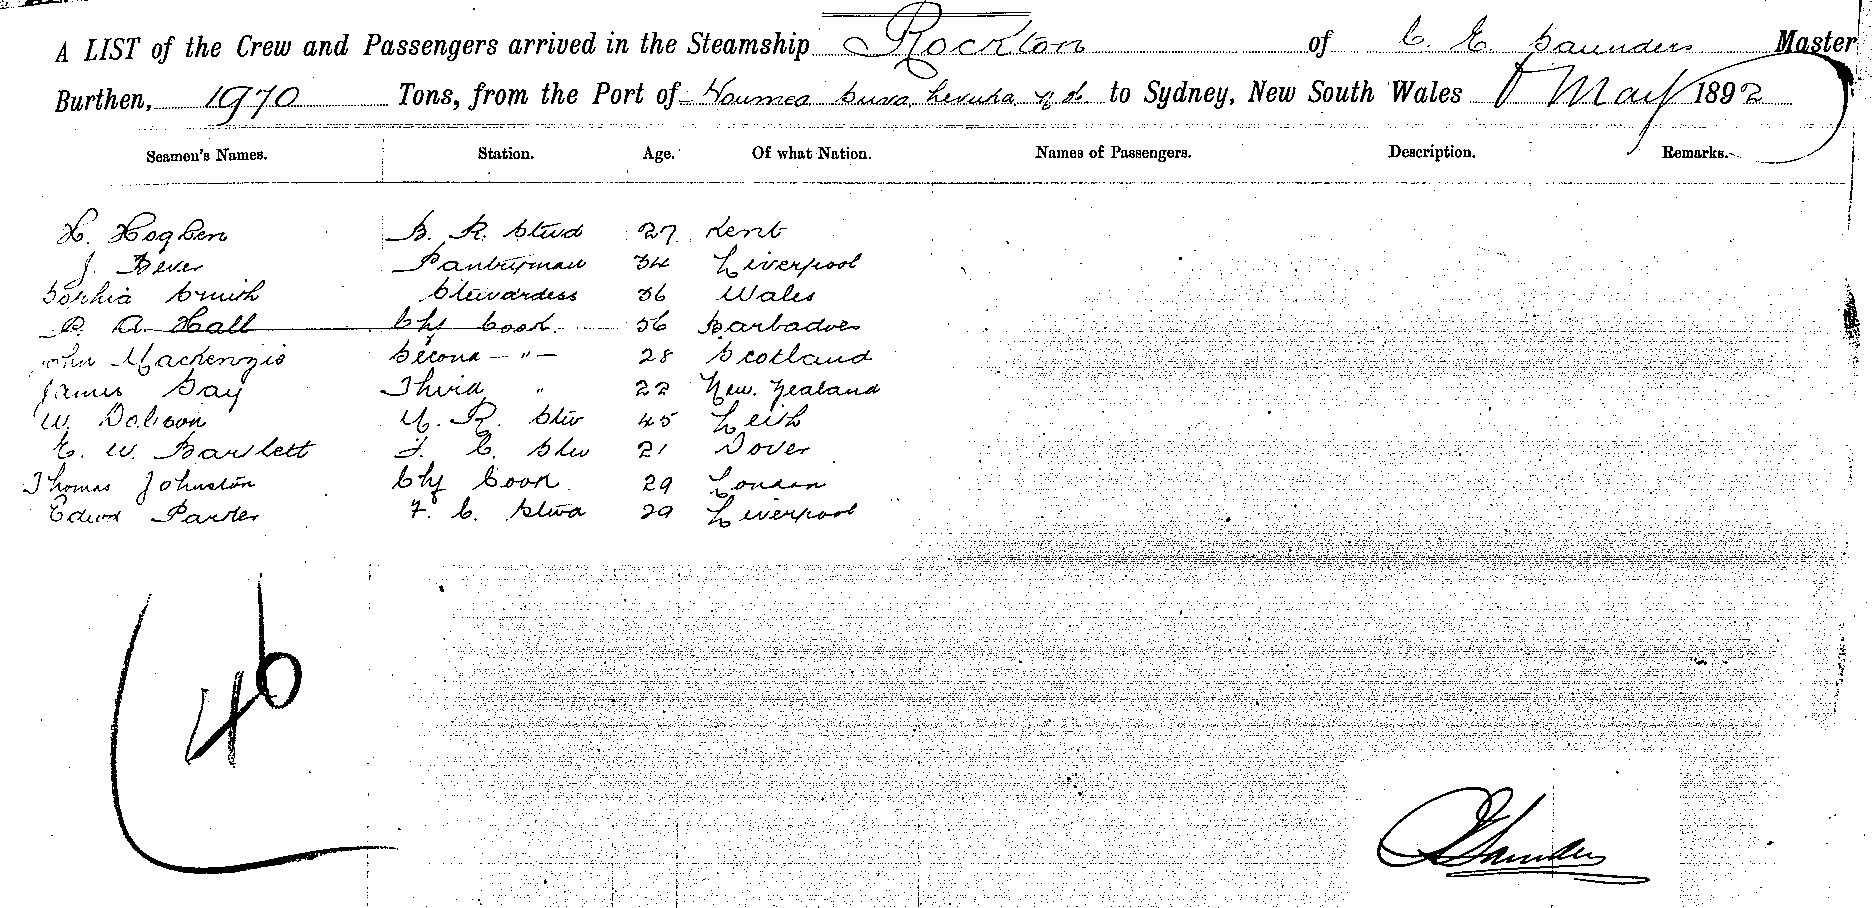 A LIST of the Crew and Passengers arrived in the Steamship Rockton of C. E. Saunders Master
Burthen, 1970 Tons, from the Port of Noumea Suva Levuka to Sydney, New South Wales May 1892
Seamen's Names. Station. Age. Of what Nation. Names of Passengers. Description. Remarks.
H. Hogben B. R. Stwd 27 Kent
J. Bever Pantryman 34 Liverpool
Sophia Smith Stewardess 36 Wales
A. Hall Chf Cook 56 Barbadoes
John Mackenzie Second - " - 28 Scotland
James Gay Third " 22 New Zealand
W. Dobson R. Stw 45 Leith
E. W. Bartlett F. C. Stw 21 Dover
Thomas Johnston Chf Cook 29 London
Edwd Parker F. C. Stwd 29 Liverpool
46
Saunders